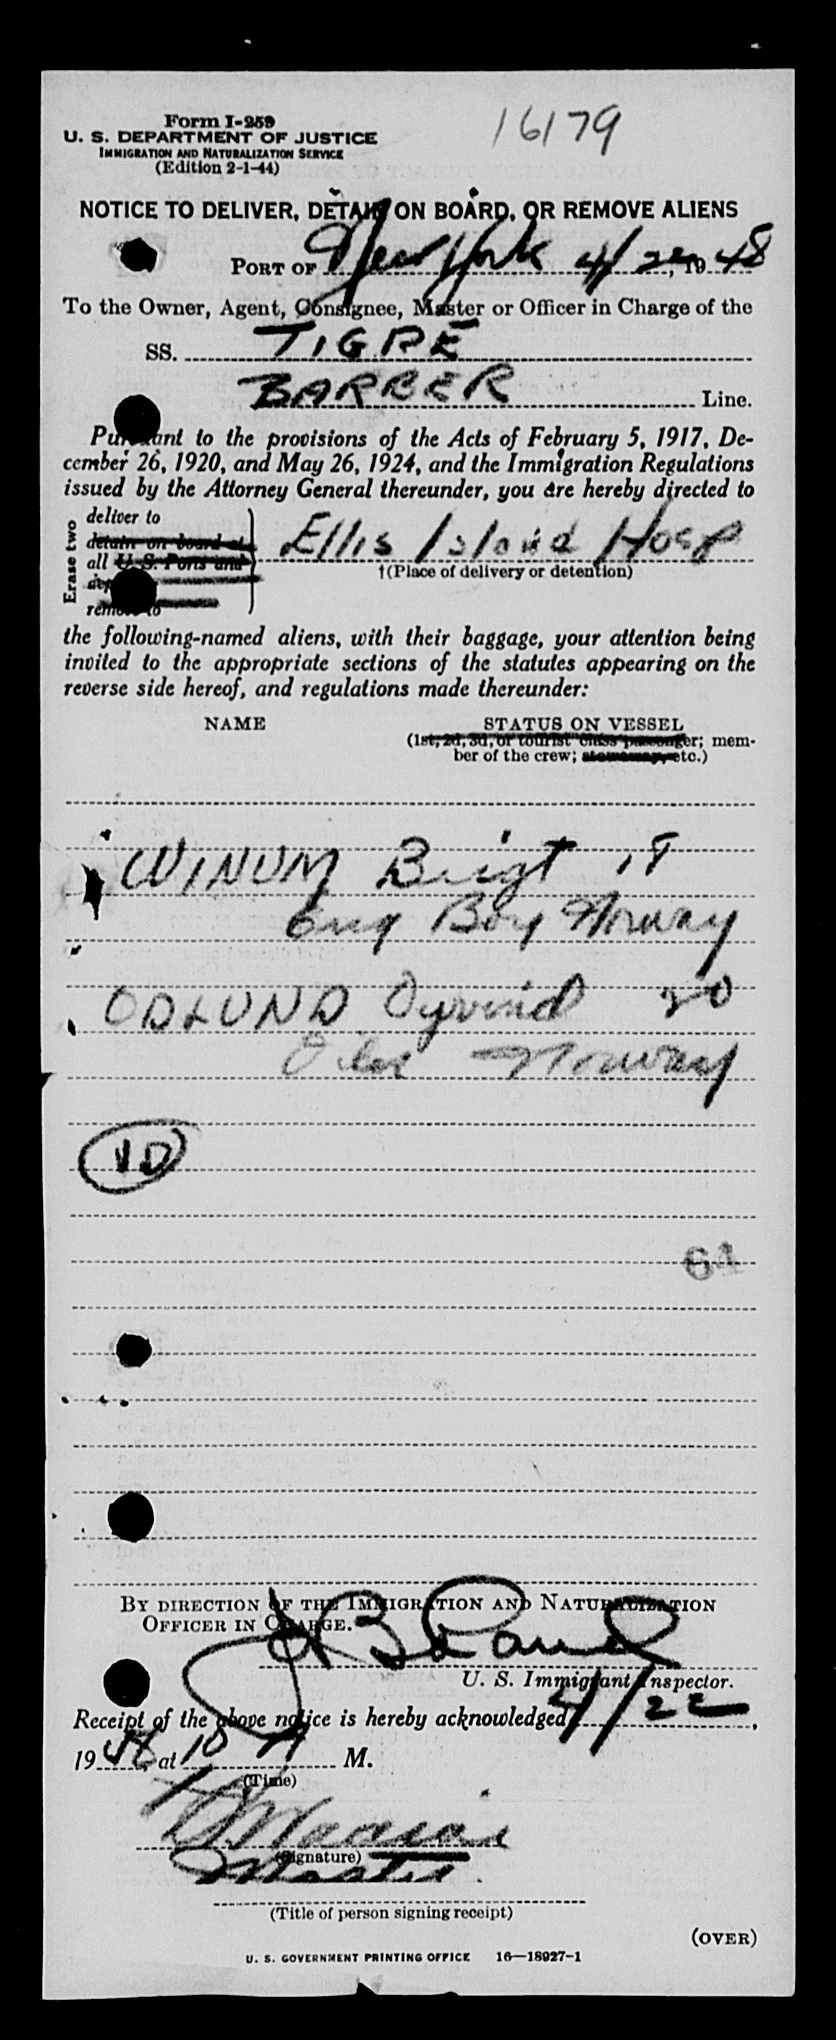 Form I-259
U. S. DEPARTMENT OF JUSTICE
IMMIGRATION AND NATURALIZATION SERVICE
(Edition 2-1-44)
16179
NOTICE TO DELIVER, DETAIN ON BOARD, OR REMOVE ALIENS
PORT OF New York 4/22, 1948
To the Owner, Agent, Consignee, Master or Officer in Charge of the
SS. TIGRE
BARBER Line.
Pursuant to the provisions of the Acts of February 5, 1917, De-
cember 26, 1920, and May 26, 1924, and the Immigration Regulations
issued by the Attorney General thereunder, you are hereby directed to
Erase two
deliver to
detain on board at
all U.S. Ports and
remove to
Ellis Island Hosp
†(Place of delivery or detention)
the following-named aliens, with their baggage, your attention being
invited to the appropriate sections of the statutes appearing on the
reverse side hereof, and regulations made thereunder:
NAME STATUS ON VESSEL
(1st, 2d, 3d, or tourist class passenger; mem-
ber of the crew; stowaway, etc.)
WINUM Birgt 18
Eng Boy Norway
ODLUND Oyvind 20
Oiler Norway
VD
61
BY DIRECTION OF THE IMMIGRATION AND NATURALIZATION
OFFICER IN CHARGE.
U. S. Immigrant Inspector.
Receipt of the above notice is hereby acknowledged 4/22,
1948, at 10 A M.
(Time)
(Signature)
Master
(Title of person signing receipt)
(OVER)
U. S. GOVERNMENT PRINTING OFFICE 16—18927-1